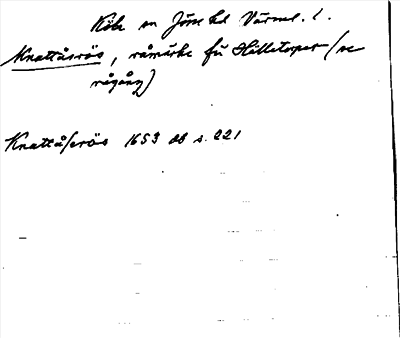 Köla sn Jösse hd Värml. l.
Knattåsrös, råmärke fr Hilletorpet (se
rågång)
Knattåsrös 1653 db s. 221